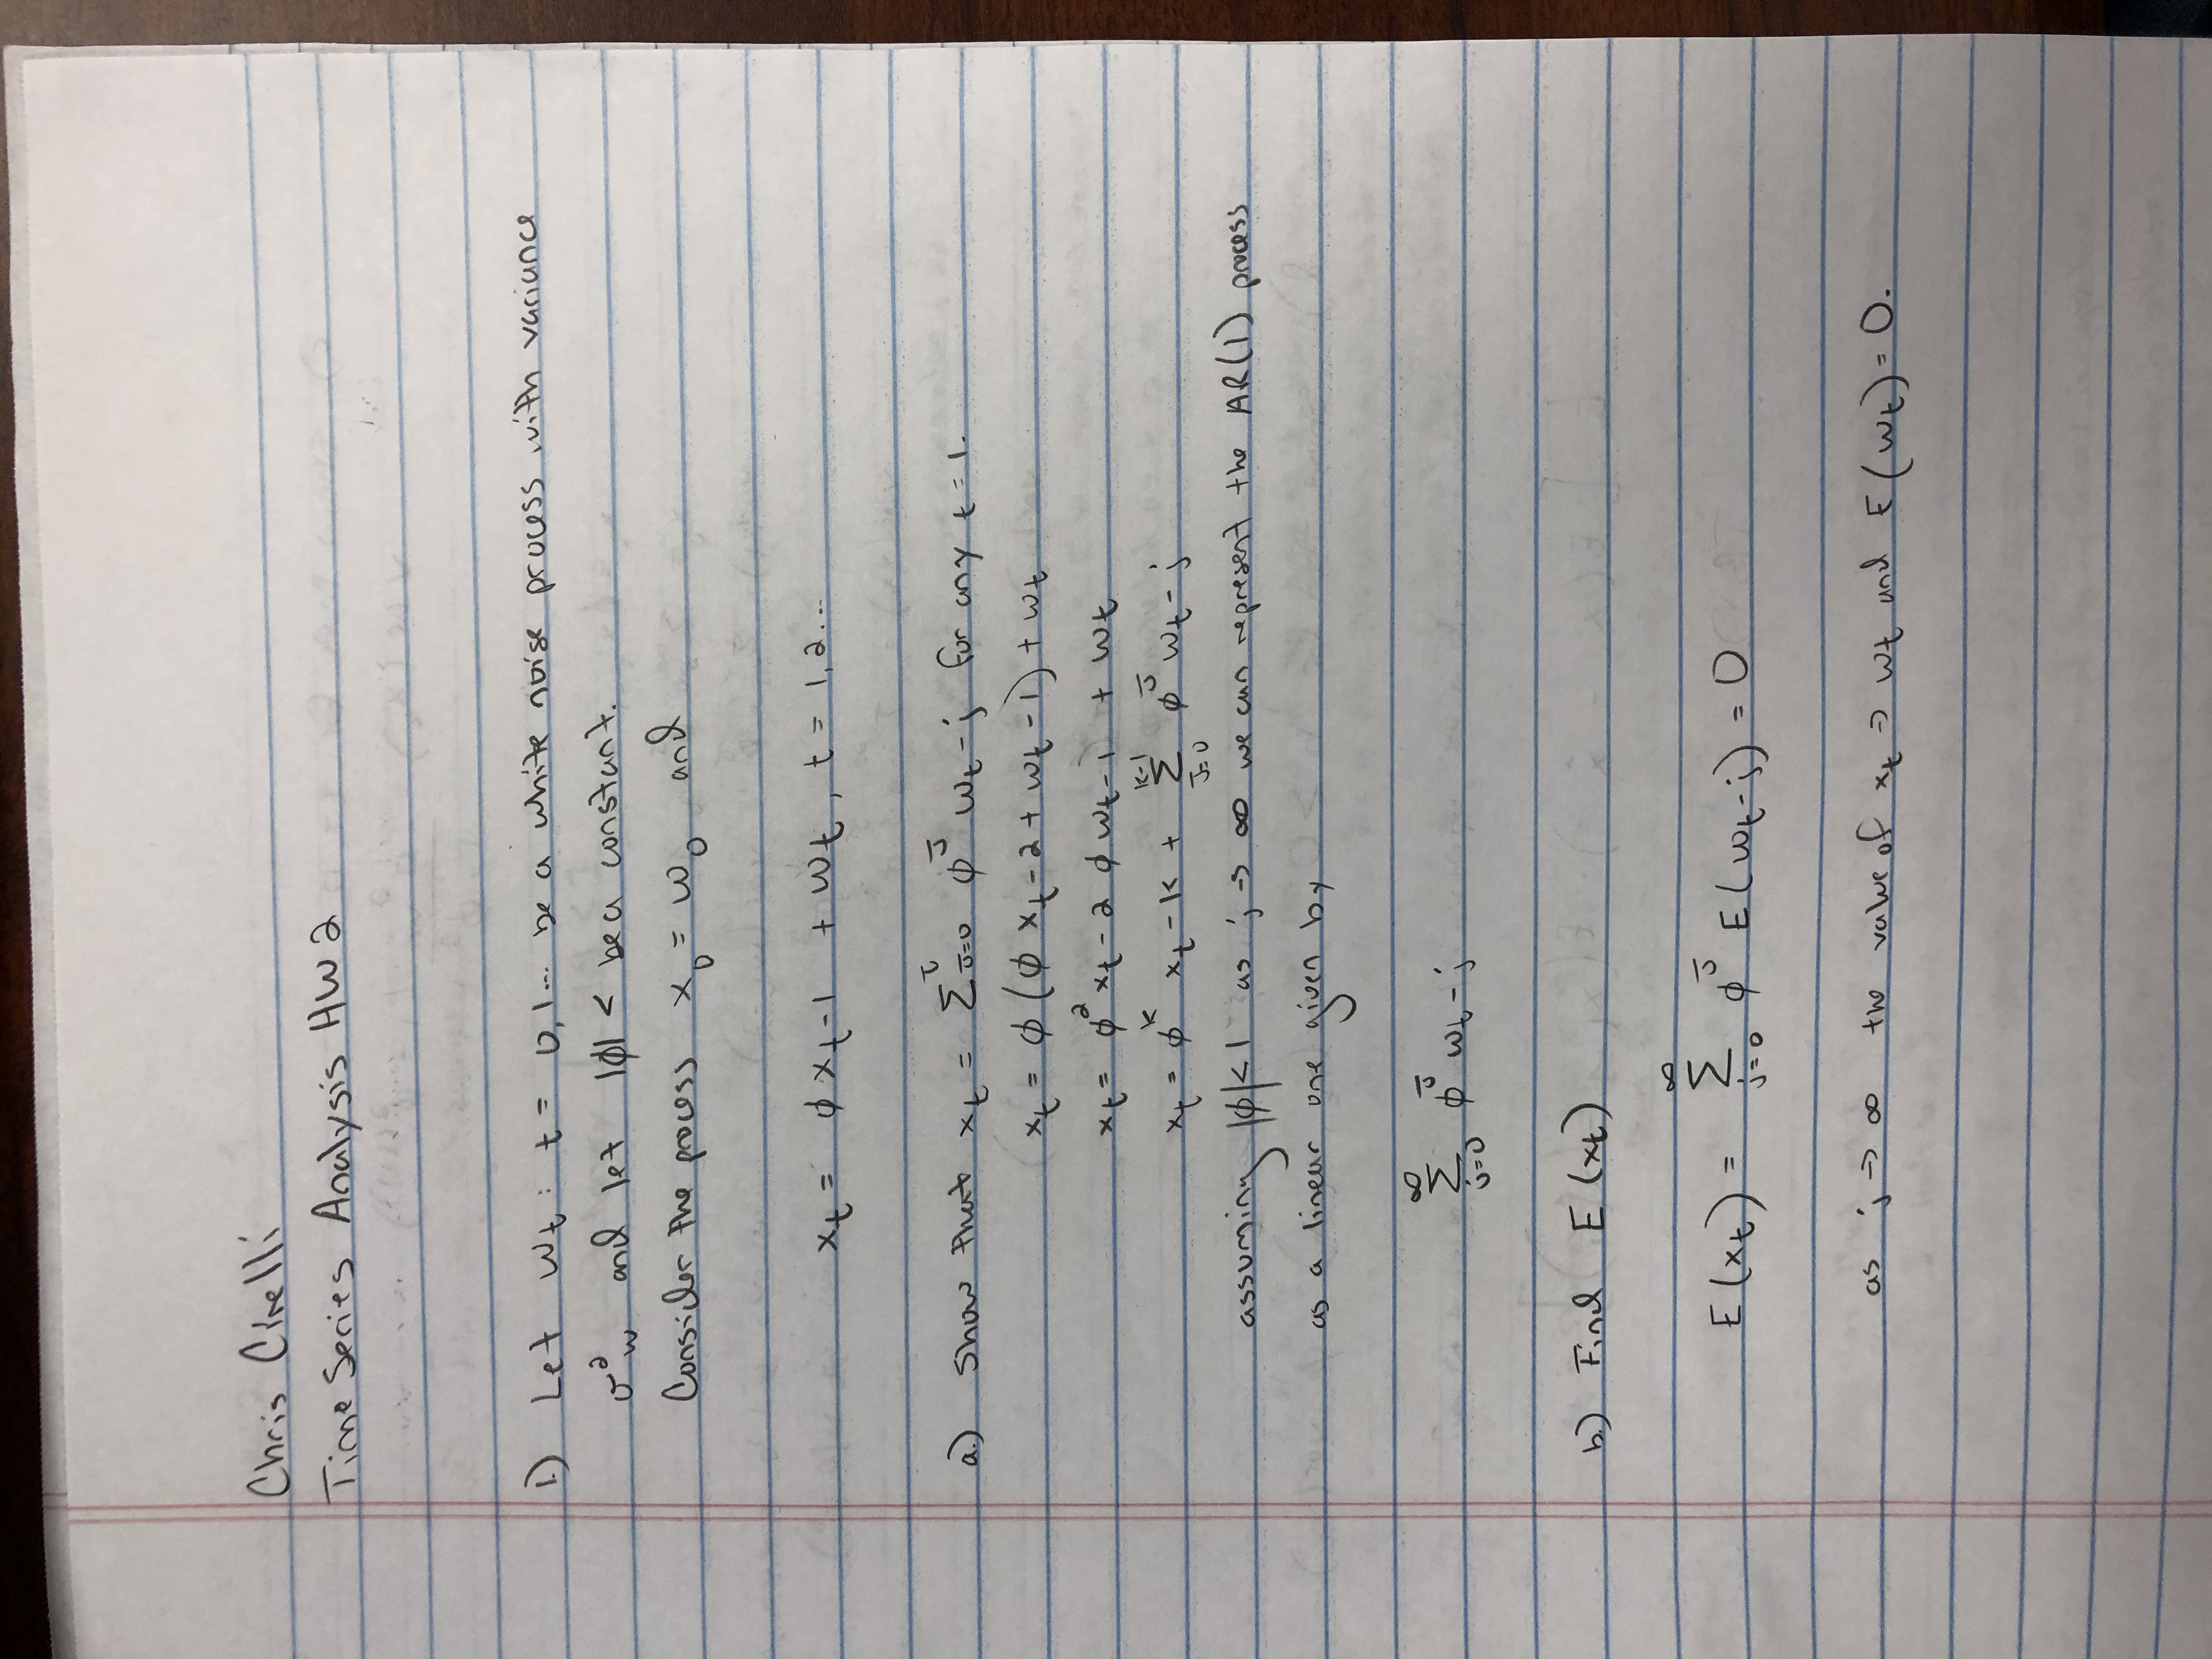 Chris Cirelli
Time Series Analysis HW 2
1.) Let wt : t = 0,1... be a white noise process with variance
σ²w and let |φ| < be a constant.
Consider the process x0 = w0 and
xt = φ xt-1 + wt, t = 1,2...
a.) Show that xt = Σ^t j=0 φ^j wt-j for any t = 1.
xt = φ (φ xt-2 + wt-1) + wt
xt = φ² xt-2 φ wt-1 + wt
xt = φ^k xt-k + Σ^k-1 j=0 φ^j wt-j
assuming |φ|<1 as j → ∞ we can represent the AR(1) process
as a linear one given by
Σ^∞ j=0 φ^j wt-j
b.) Find E (xt)
E (xt) = Σ^∞ j=0 φ^j E(wt-j) = 0
as j → ∞ the value of xt → wt and E(wt) = 0.